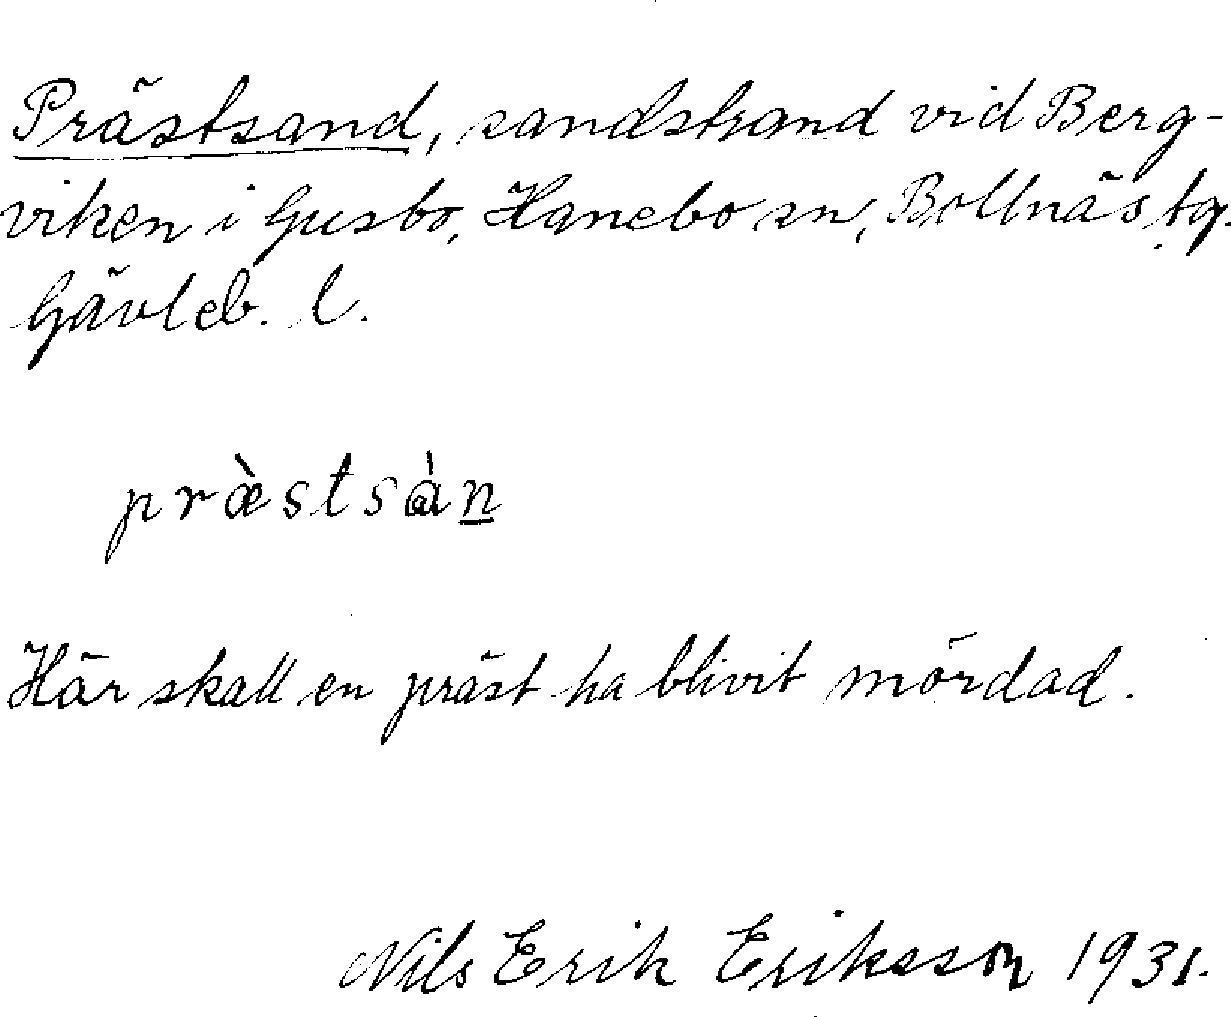 Prästsand, sandstrand vid Berg-
viken i Gusbo, Hanebo sn, Bollnäs tg.
Gävleb. l.
præ̀stsàn̲
Här skall en präst ha blivit mördad.
Nils Erik Eriksson 1931.